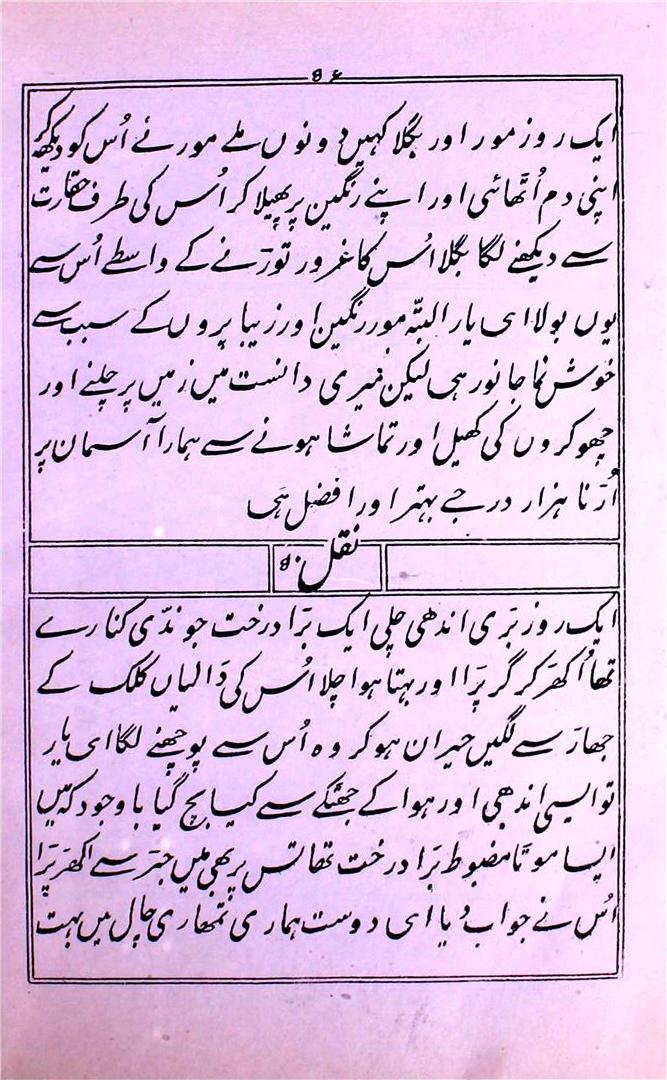 ۴۶
ایک روز مور اور بگلا کہیں دونوں ملے مور نے اُس کو دیکھ کر
اپنی دم اُتھائی اور اپنے رنگین پر پھیلا کر اُس کی طرف حقارت
سے دیکھنے لگا بگلا اُس کا غرور توڑنے کے واسطے اُس سے
یوں بولا ای یار البتّہ مور رنگین اور زیبا پروں کے سبب سے
خوش نما جانور ہی لیکن میری دانست میں زمیں پر چلنے اور
چھوکروں کی کھیل اور تماشا ہونے سے ہمارا آسمان پر
اُرنا ہزار درجے بہتر اور افضل ہَی
نقل
ایک روز بَری اندھی چلی ایک بَرا درخت جو ندّی کنارے
تھا اُکھر کر گر پَرا اور بہتا ہوا چلا اُس کی دَالیاں کلک کے
جھاڑ سے لگیں حیران ہو کر وہ اُس سے پوچھنے لگا ای یار
تو ایسی اندھی اور ہوا کے جھٹکے سے کیسا بچ گیا باوجود کہ میں
ایسا موتَا مضبوط بَرا درخت تھا تس پر بھی میں جَر سے اکھر پَرا
اُس نے جواب دیا ای دوست ہماری تمھاری چال میں بہت